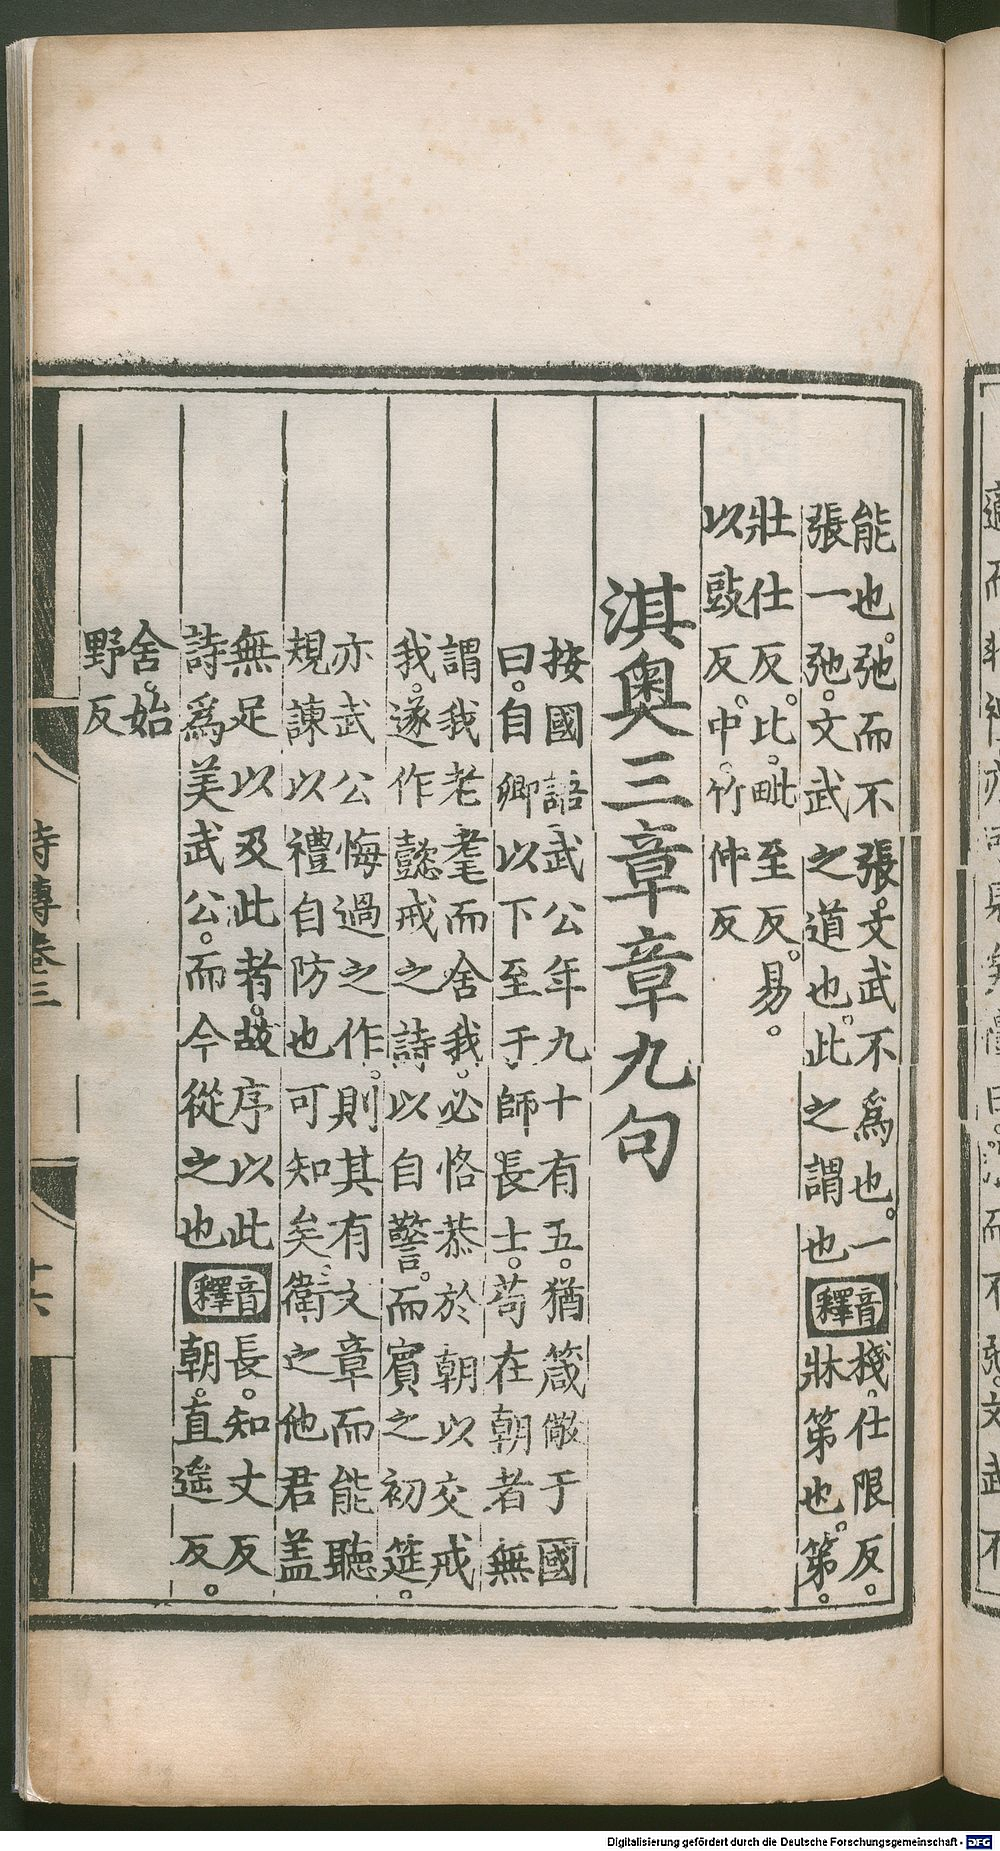 能也。弛而不張。文武不爲也。一
張一弛。文武之道也。此之謂也
音釋
棧。仕限反。
牀第也。第。
壯仕反。比。毗至反。易。
以豉反。中。竹仲反
淇奧三章章九句
按國語武公年九十有五。猶箴儆于國
曰。自卿以下至于師長士。苟在朝者無
謂我老耄而舍我。必恪恭於朝以交戒
我。遂作懿戒之詩以自警。而賓之初筵。
亦武公悔過之作。則其有文章而能聽
規諫以禮自防也可知矣。衛之他君盖
無足以及此者。故序以此
詩爲美武公。而今從之也
音釋
長。知丈反
朝。直遥反。
舍。始
野反
詩傳卷三
十六
Digitalisierung gefördert durch die Deutsche Forschungsgemeinschaft - DFG